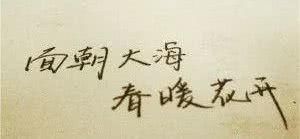 面朝大海
春暖花开